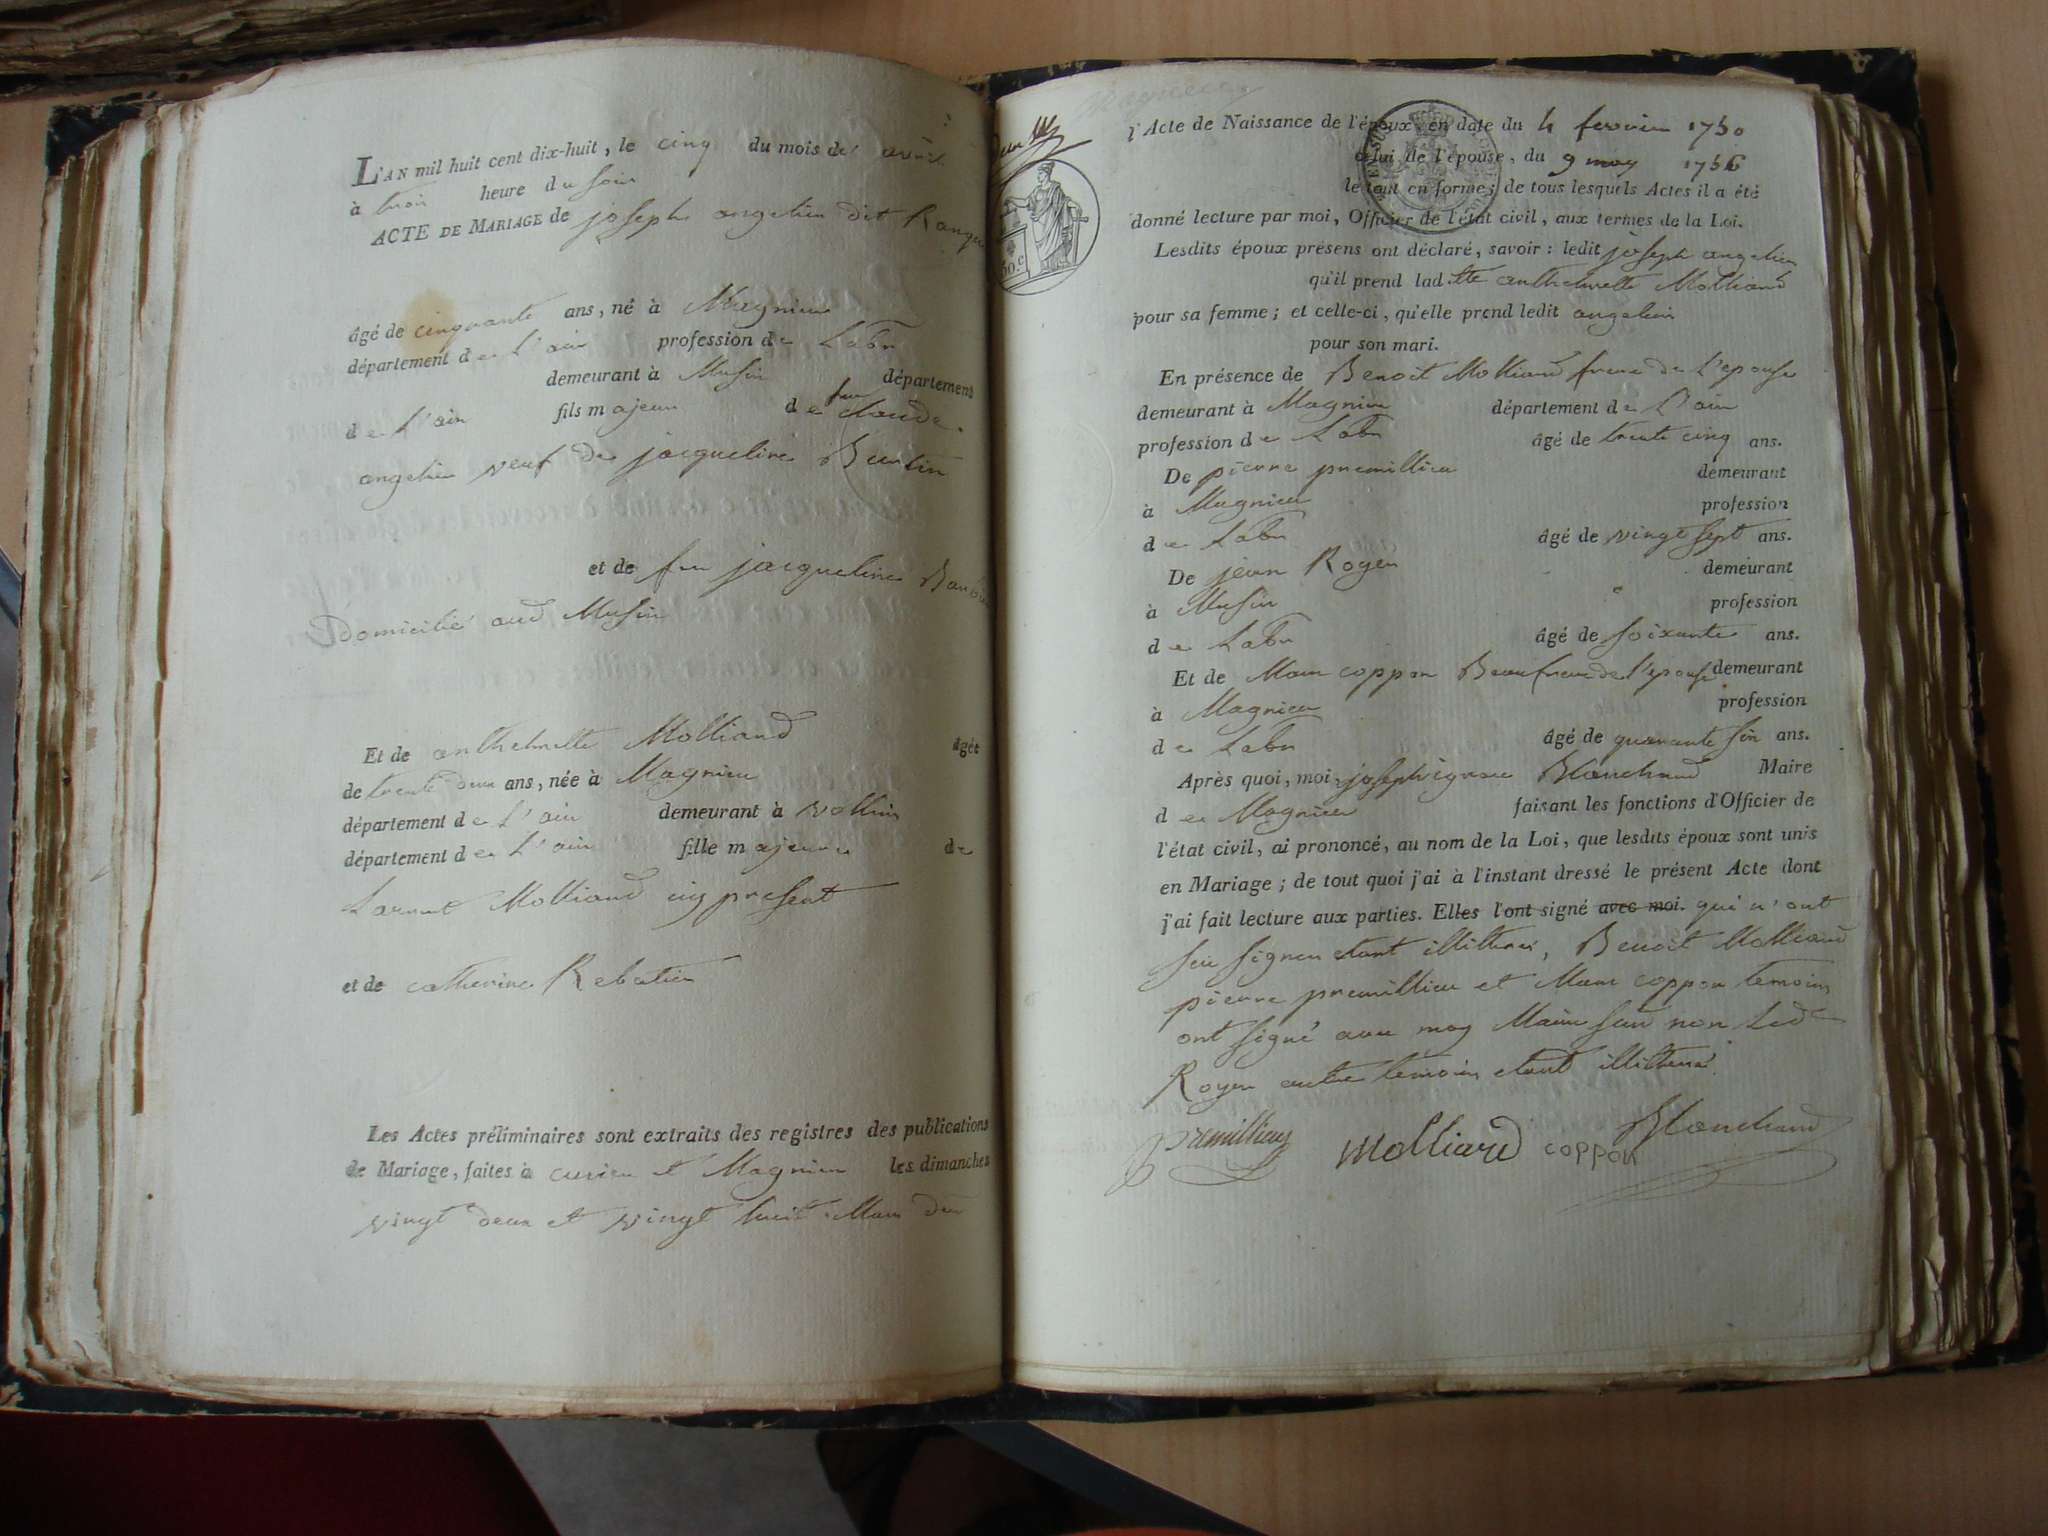 L'AN mil huit cent dix-huit, le cinq du mois de avril
à trois heure du soir
ACTE DE MARIAGE de joseph angelier dit
âgé de cinquante ans, né à Magnieu
département de L'ain profession de Labr
demeurant à Musin département
de L'ain fils majeur de feu claude
angelier veuf de jacqueline
et de feu jacqueline
Domicilié aud Musin
Et de anthelmette Molliard âgée
de trente deux ans, née à Magnieu
département de L'ain demeurant à vollien
département de L'ain fille majeure de
Laurent Molliard icy present
et de catherine Rebatier
Les Actes préliminaires sont extraits des registres des publications
de Mariage, faites à cusieu et Magnieu les dimanches
vingt deux et vingt huit Mars dur
50.c
l'Acte de Naissance de l'époux, en date du 4 fevrier 1750
celui de l'épouse, du 9 may 1756
le tout en forme; de tous lesquels Actes il a été
donné lecture par moi, Officier de l'état civil, aux termes de la Loi.
Lesdits époux présens ont déclaré, savoir : ledit joseph angelier
qu'il prend lad tte anthelmette Molliard
pour sa femme; et celle-ci, qu'elle prend ledit angelier
pour son mari.
En présence de Benoit Molliard frere de L'epouse
demeurant à Magnieu département de L'ain
profession de Labr âgé de trente cinq ans.
De pierre premillieu demeurant
à Magnieu profession
de Labr âgé de vingt sept ans.
De jean Royer demeurant
à Musin profession
de Labr âgé de soixante ans.
Et de Marc coppon Beaufrere de l'epouse demeurant
à Magnieu profession
de Labr âgé de quarante six ans.
Après quoi, moi, joseph ignace Blanchard Maire
de Magnieu faisant les fonctions d'Officier de
l'état civil, ai prononcé, au nom de la Loi, que lesdits époux sont unis
en Mariage; de tout quoi j'ai à l'instant dressé le présent Acte dont
j'ai fait lecture aux parties. Elles l'ont signé avec moi. qui n'ont
seu signer etant illiteres, Benoit Molliard
pierre premillieu et Marc coppon temoins
ont signé avec moy Maire sur non Led
Royer autre temoin etant illiteré.
premillieu Molliard coppon Blanchard